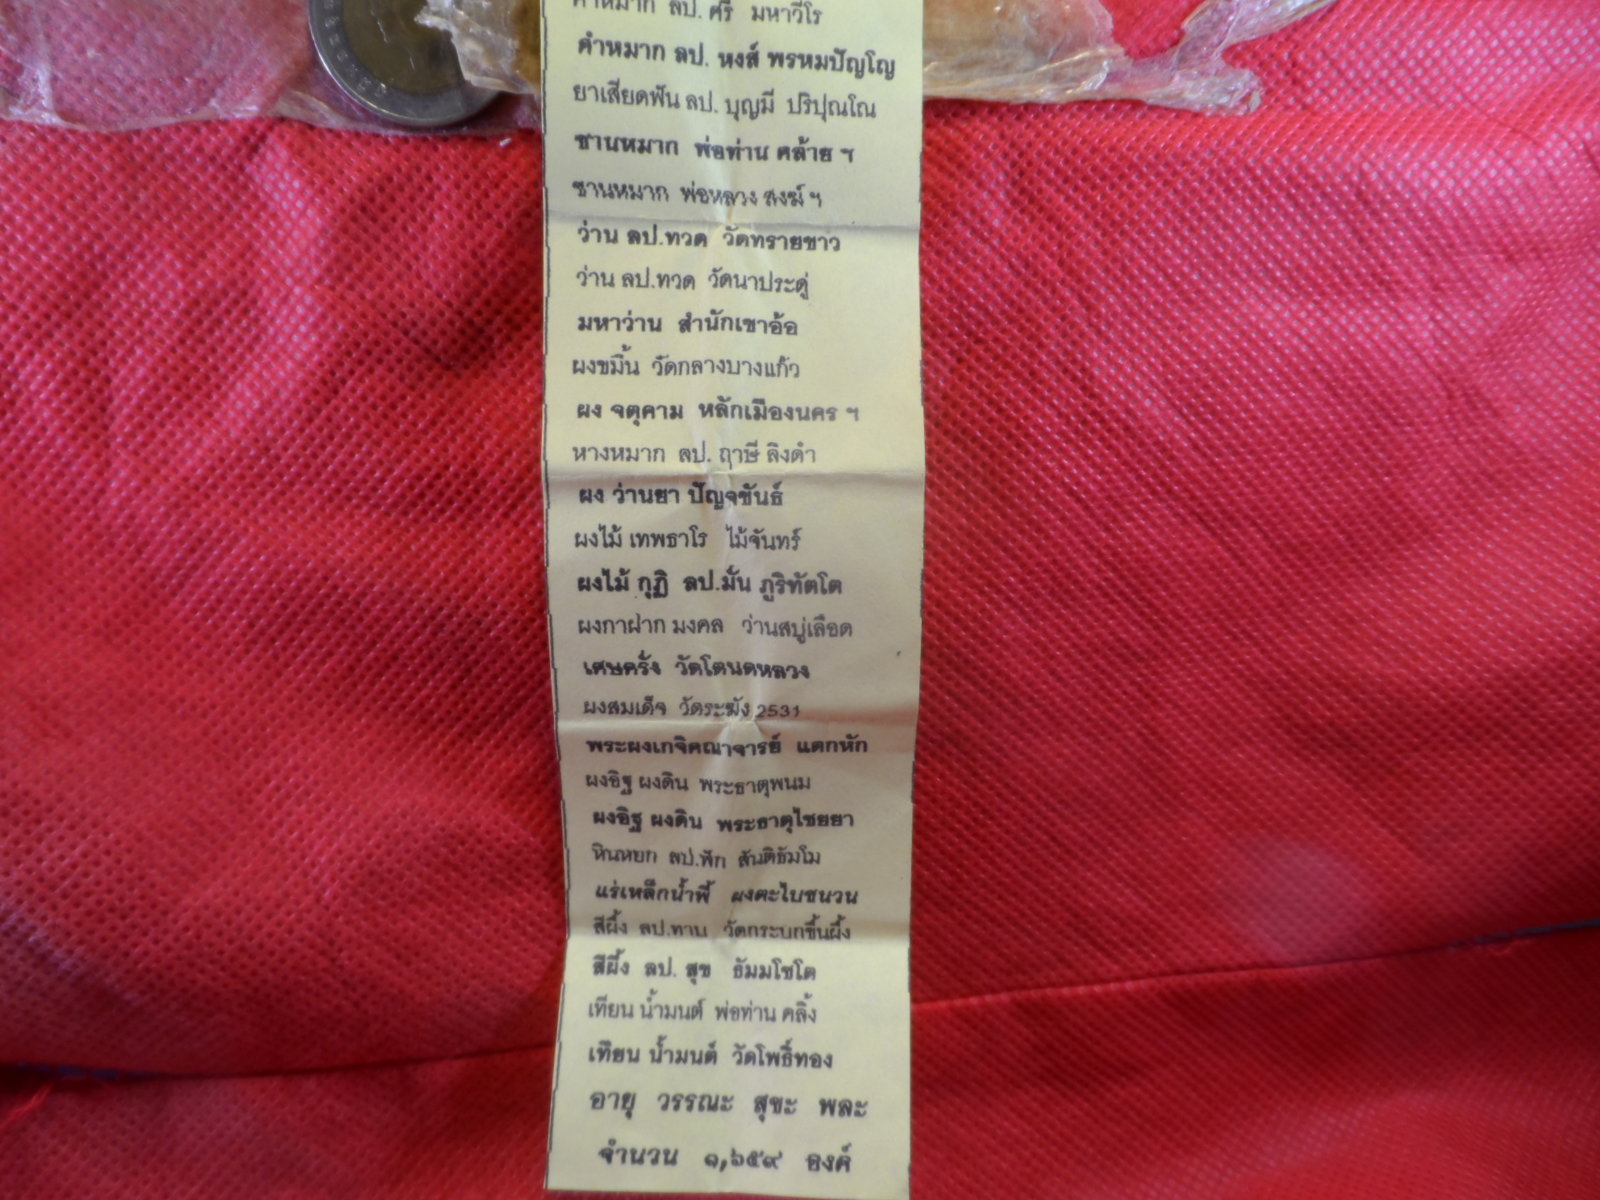 คำหมาก ลป. ศรี มหาวีโร
คำหมาก ลป. หงส์ พรหมปัญโญ
ยาเสียดฟัน ลป. บุญมี ปริปุณโณ
ชานหมาก พ่อท่าน คล้าย ฯ
ชานหมาก พ่อหลวง สงฆ์ ฯ
ว่าน ลป.ทวด วัดทรายขาว
ว่าน ลป.ทวด วัดนาประดู่
มหาว่าน สำนักเขาอ้อ
ผงขมิ้น วัดกลางบางแก้ว
ผง จตุคาม หลักเมืองนคร ฯ
หางหมาก ลป. ฤาษี ลิงดำ
ผง ว่านยา ปัญจขันธ์
ผงไม้ เทพธาโร ไม้จันทร์
ผงไม้ กุฏิ ลป.มั่น ภูริทัตโต
ผงกาฝาก มงคล ว่านสบู่เลือด
เศษครั่ง วัดโตนดหลวง
ผงสมเด็จ วัดระฆัง 2531
พระผงเกจิคณาจารย์ แตกหัก
ผงอิฐ ผงดิน พระธาตุพนม
ผงอิฐ ผงดิน พระธาตุไชยยา
หินหยก ลป.ฟัก สันติธัมโม
แร่เหล็กน้ำพี้ ผงตะไบชนวน
สีผึ้ง ลป.ทาบ วัดกระบกขึ้นผึ้ง
สีผึ้ง ลป. สุข ธัมมโชโต
เทียน น้ำมนต์ พ่อท่าน คลิ้ง
เทียน น้ำมนต์ วัดโพธิ์ทอง
อายุ วรรณะ สุขะ พละ
จำนวน ๑,๖๕๙ องค์